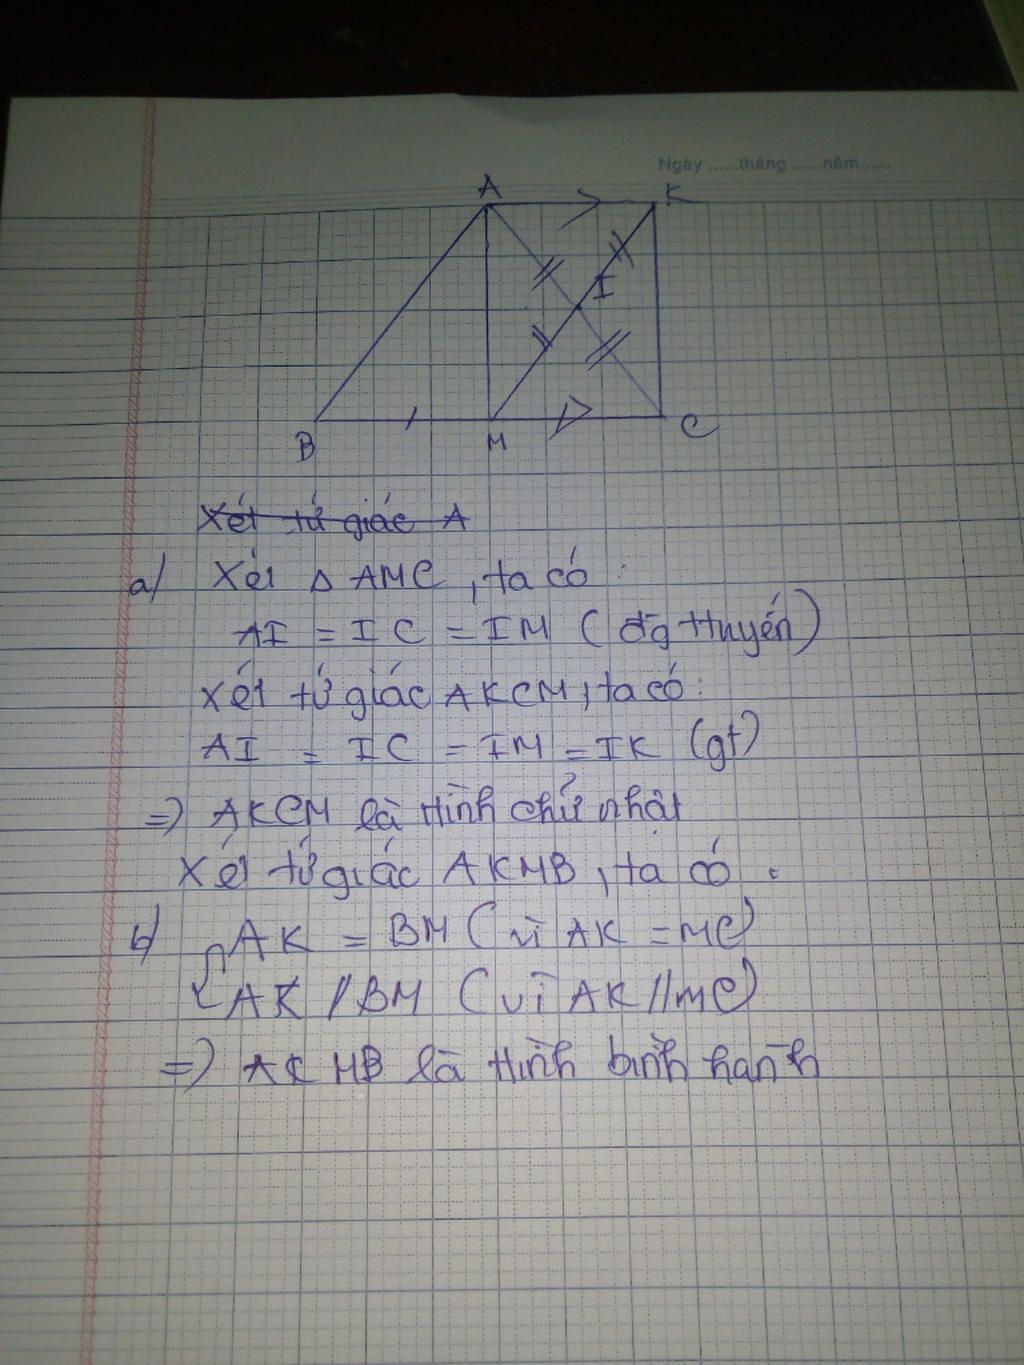 Ngày ......tháng ......năm......
A
K
I
B
M
C
Xét tứ giác A
a/ Xét Δ AMC, ta có :
AI = IC = IM (
Xét tứ giác AKCM, ta có :
AI = IC = IM = IK (gt)
=> AKCM là Hình chữ nhật
Xét tứ giác AKMB, ta có :
b/ AK = BM (vì AK = MC)
AK // BM (vì AK // MC)
=> AKMB là Hình bình hành